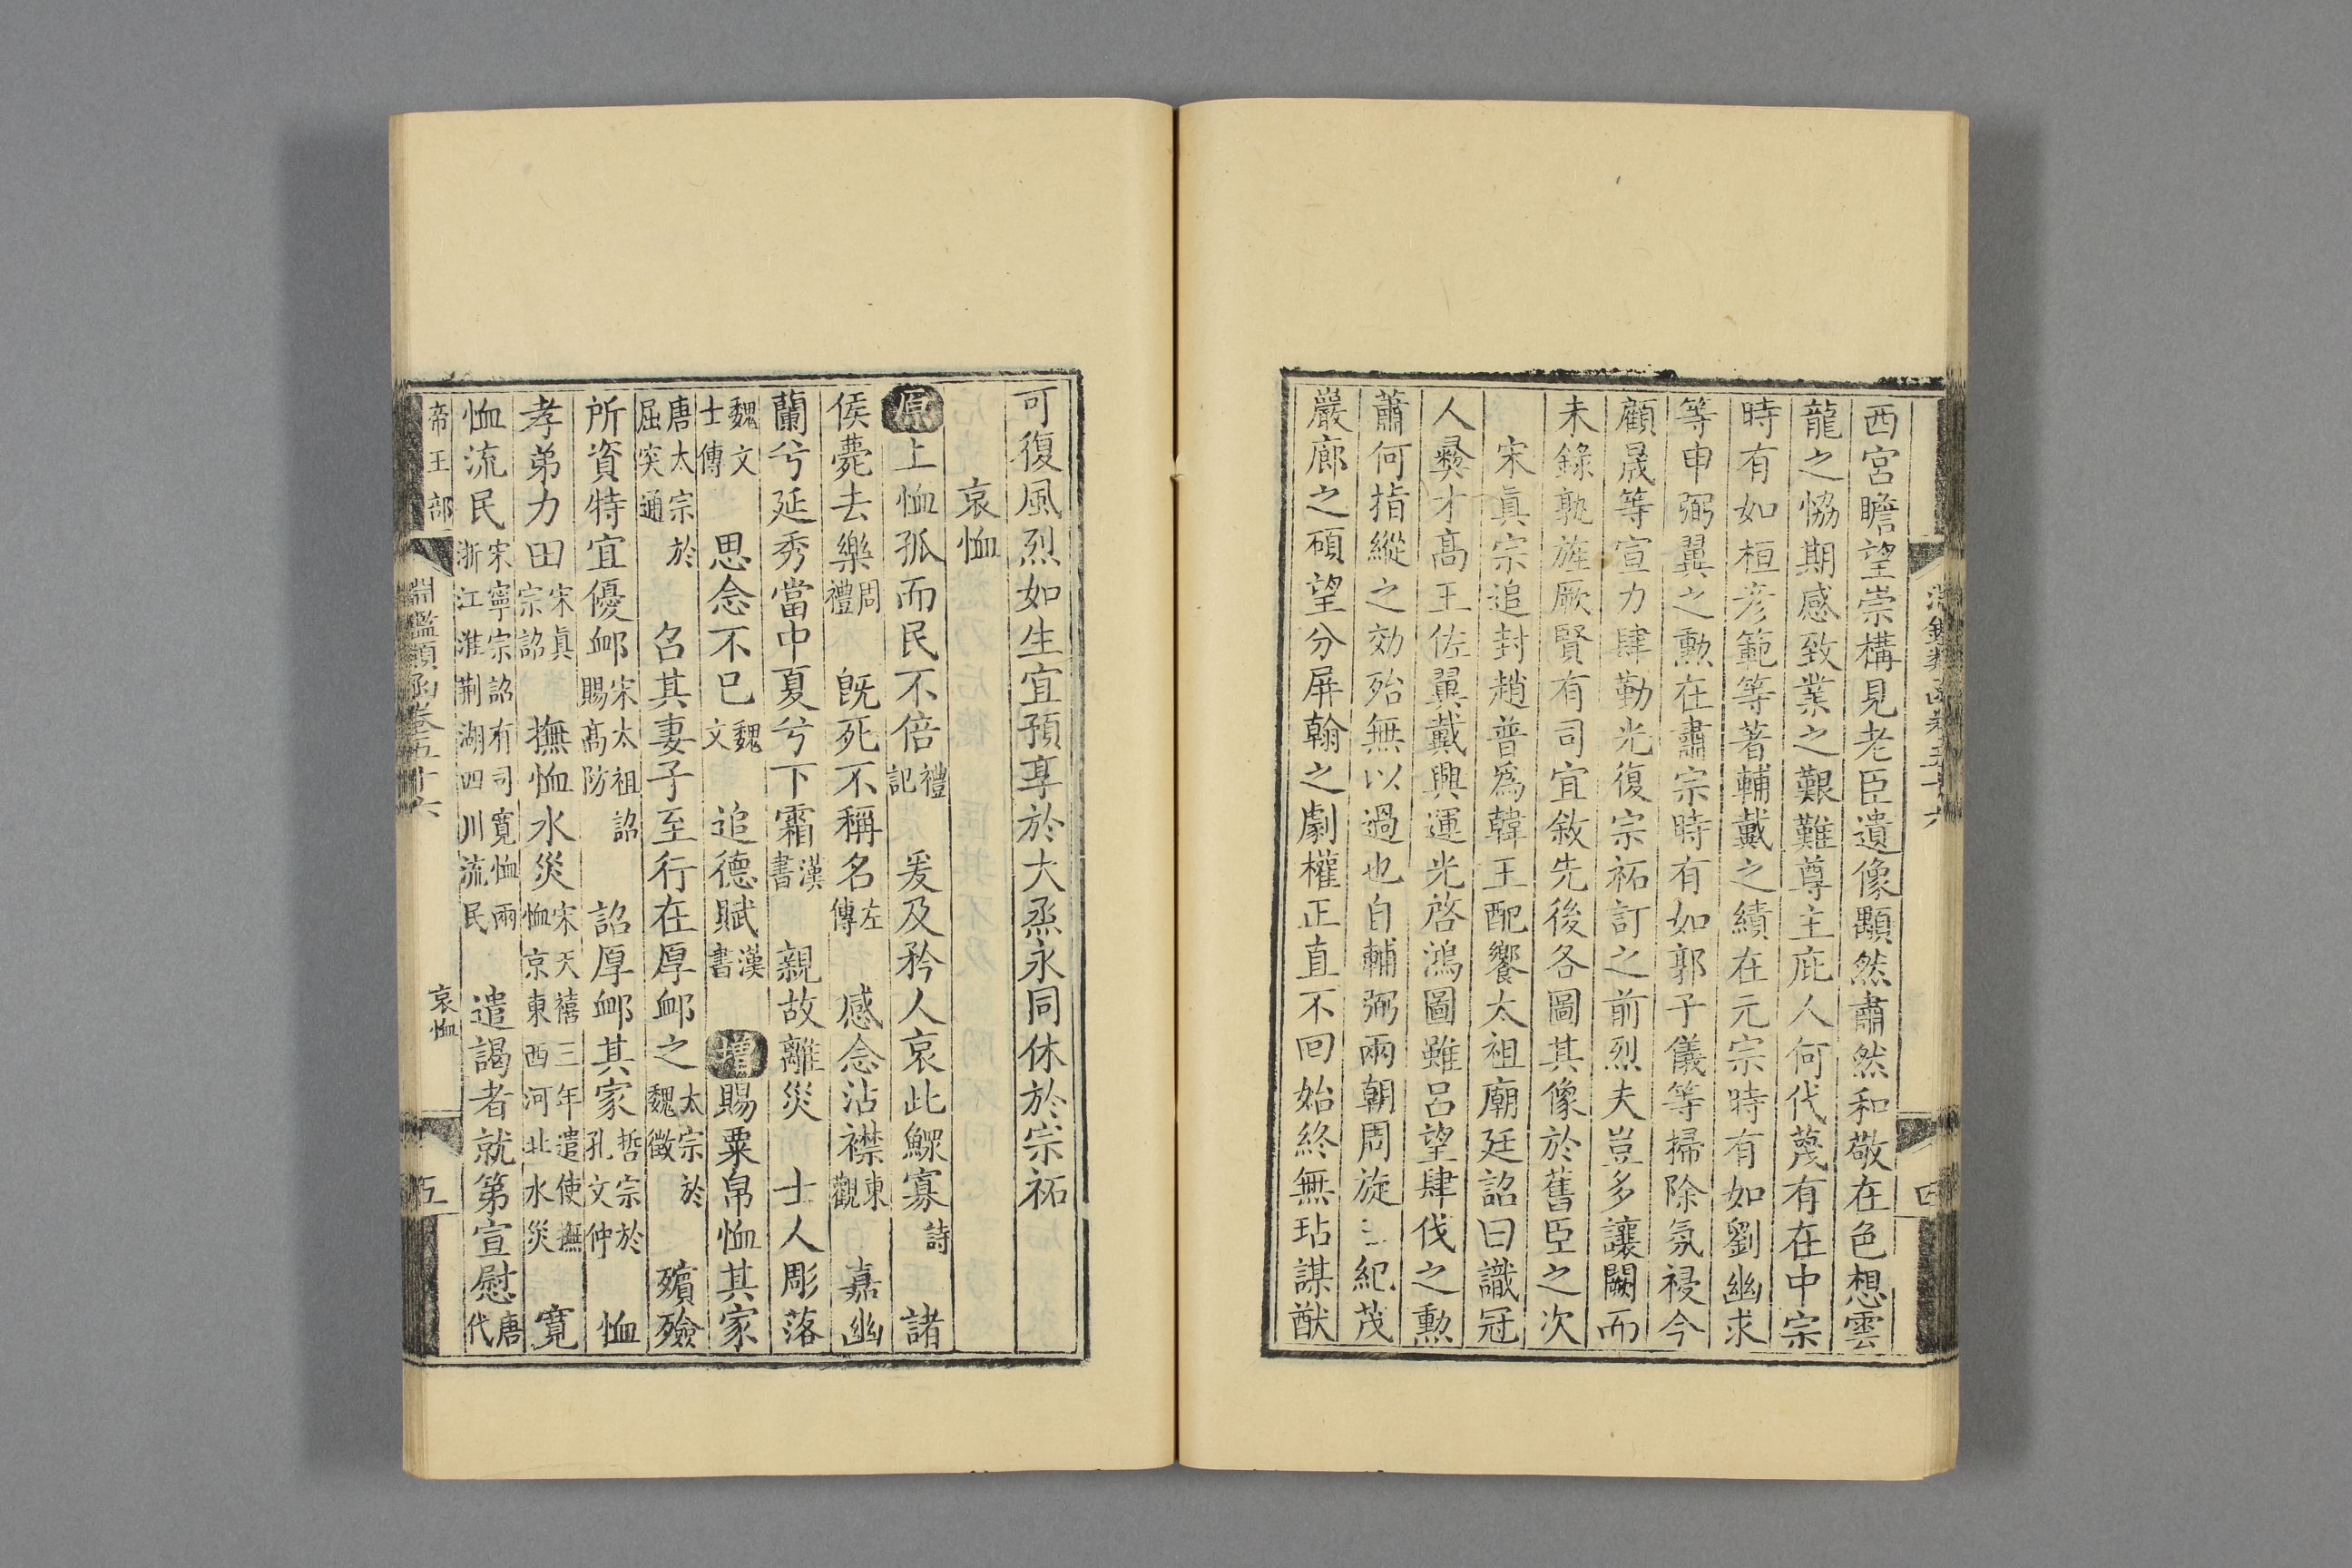 西宮瞻望崇構見老臣遺像顒然肅然和敬在色想雲
龍之恊期感致業之艱難尊主庇人何代蔑有在中宗
時有如桓彦範等著輔戴之績在元宗時有如劉幽求
等申弼翼之勲在肅宗時有如郭子儀等掃除氛祲今
顧晟等宣力肆勤光復宗祏訂之前烈夫豈多讓闕而
未錄孰旌厥賢有司宜敘先後各圖其像於舊臣之次
宋眞宗追封趙普爲韓王配饗太祖廟廷詔曰識冠
人彛才高王佐翼戴興運光啓鴻圖雖呂望肆伐之勲
蕭何指縱之効殆無以過也自輔弼兩朝周旋三紀茂
嚴廊之碩望分屏翰之劇權正直不回始終無玷謀猷
四
可復風烈如生宜預享於大烝永同休於宗祏
哀恤
原上恤孤而民不倍禮記 爰及矜人哀此鰥寡詩 諸
侯薨去樂周禮 旣死不稱名左傳 感念沾襟東觀 嘉幽
蘭兮延秀當中夏兮下霜漢書 親故離災 士人彫落
魏文士傳 思念不已魏文 追德賦漢書 增賜粟帛恤其家
唐太宗於屈突通 召其妻子至行在厚卹之太宗於魏徵 殯殮
所資特宜優卹宋太祖詔賜高防 詔厚卹其家哲宗於孔文仲 恤
孝弟力田宋眞宗詔 撫恤水災宋天禧三年遣使撫恤京東西河北水災 寛
恤流民宋寧宗詔有司寛恤兩浙江淮荆湖四川流民 遣謁者就第宣慰唐代
帝王部 淵鑑類函卷五十六 哀恤 五